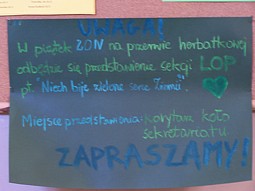 UWAGA!
W piątek 20 IV na przerwie herbatkowej
odbędzie się przedstawienie sekcji LOP
pt. "Niech bije zielone serce Ziemi".
Miejsce przedstawienia: korytarz koło
sekretariatu
ZAPRASZAMY!